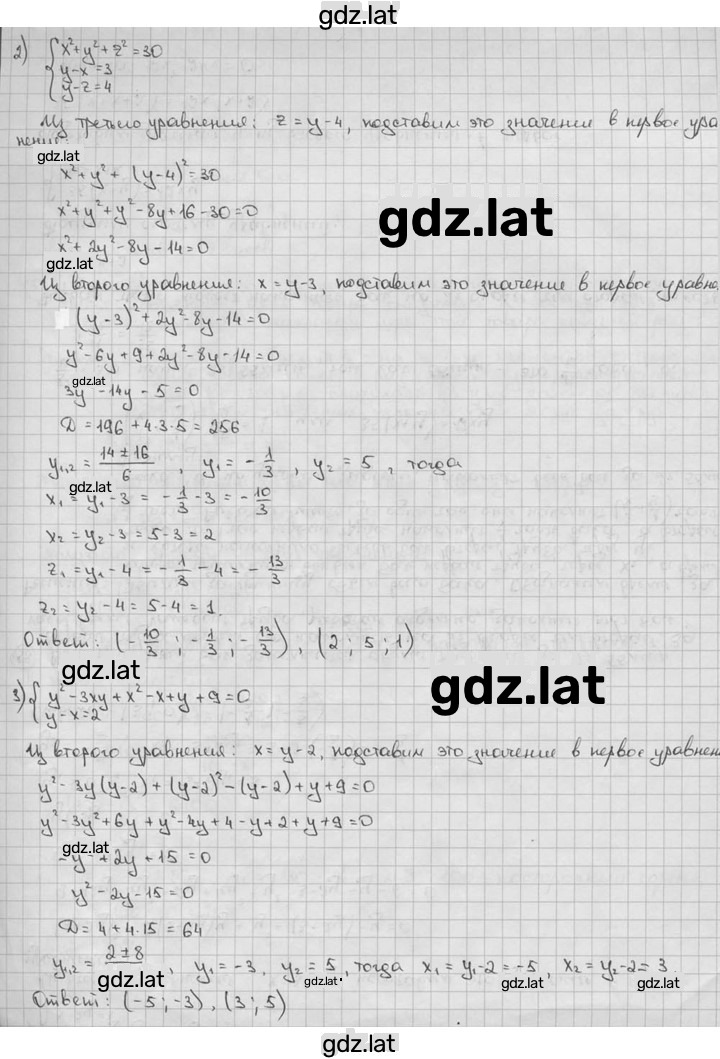 gdz.lat
2) { x² + y² + z² = 30
y - x = 3
y - z = 4
Из третьего уравнения: z = y - 4, подставим это значение в первое ура
нение:
gdz.lat
x² + y² + (y - 4)² = 30
x² + y² + y² - 8y + 16 - 30 = 0
gdz.lat
x² + 2y² - 8y - 14 = 0
gdz.lat
Из второго уравнения: x = y - 3, подставим это значение в первое уравне
(y - 3)² + 2y² - 8y - 14 = 0
y² - 6y + 9 + 2y² - 8y - 14 = 0
gdz.lat
3y² - 14y - 5 = 0
D = 196 + 4·3·5 = 256
y₁,₂ = (14 ± 16)/6 , y₁ = - 1/3 , y₂ = 5 , тогда
gdz.lat
x₁ = y₁ - 3 = - 1/3 - 3 = - 10/3
x₂ = y₂ - 3 = 5 - 3 = 2
z₁ = y₁ - 4 = - 1/3 - 4 = - 13/3
z₂ = y₂ - 4 = 5 - 4 = 1.
Ответ: (- 10/3 ; - 1/3 ; - 13/3) , (2 ; 5 ; 1)
gdz.lat
gdz.lat
3) { y² - 3xy + x² - x + y + 9 = 0
y - x = 2
Из второго уравнения: x = y - 2, подставим это значение в первое уравнен
y² - 3y(y - 2) + (y - 2)² - (y - 2) + y + 9 = 0
y² - 3y² + 6y + y² - 4y + 4 - y + 2 + y + 9 = 0
gdz.lat
- y² + 2y + 15 = 0
y² - 2y - 15 = 0
D = 4 + 4·15 = 64
y₁,₂ = (2 ± 8)/ , y₁ = -3, y₂ = 5, тогда x₁ = y₁ - 2 = -5, x₂ = y₂ - 2 = 3.
gdz.lat gdz.lat gdz.lat gdz.lat
Ответ: (-5 ; -3) , (3 ; 5)
gdz.lat